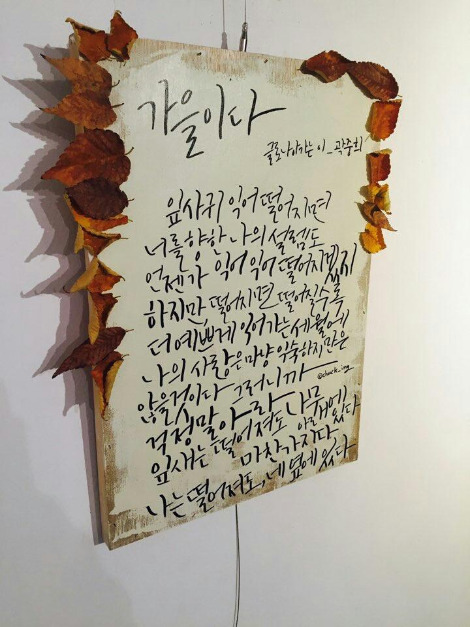 가을이다
글로나아가는 이_곽중희
잎사귀 익어 떨어지면
너를 향한 나의 설렘도
언젠가 익어 익어 떨어지겠지
하지만 떨어지면 떨어질수록
더 예쁘게 익어가는 세월에
나의 사랑은 마냥 익숙하지만은
않을것이다 그러니까
걱정말아라
잎새는 떨어져도 나무 아래에 있다
마찬가지다
나는 떨어져도, 네 옆에 있다